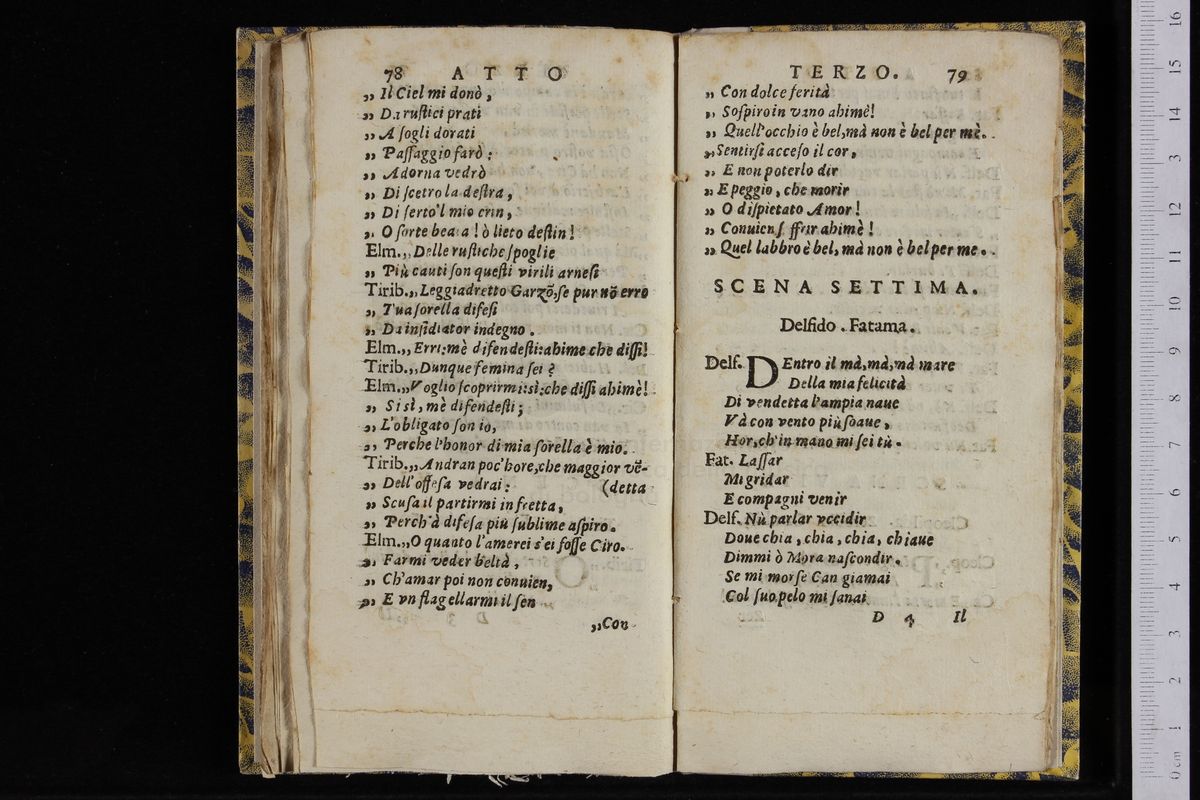 78 ATTO
„ Il Ciel mi donò,
„ Da ruſtici prati
„ A ſogli dorati
„ Paſſaggio farò:
„ Adorna vedrò
„ Di ſcetro la deſtra,
„ Di ſerto'l mio crin,
„ O ſorte beata! ò lieto deſtin!
Elm.„ Delle ruſtiche ſpoglie
„ Più cauti ſon queſti virili arneſi
Tirib.„ Leggiadretto Garzõ, ſe pur nõ erro
„ Tua ſorella difeſi
„ Da inſidiator indegno.
Elm.„ Erri: mè difendeſti: ahime che diſſi!
Tirib.„ Dunque femina ſei?
Elm.„ Voglio ſcoprirmi: sì: che diſſi ahimè!
„ Si sì, mè difendeſti;
„ L'obligato ſon io,
„ Perche l'honor di mia ſorella è mio.
Tirib.„ Andran poc'hore, che maggior vẽ-
„ Dell'offeſa vedrai: (detta
„ Scuſa il partirmi in fretta,
„ Perch'à difeſa più ſublime aſpiro.
Elm.„ O quanto l'amerei s'ei foſſe Ciro.
„ Farmi veder beltà,
„ Ch'amar poi non conuien,
„ E vn flagellarmi il ſen
„ Con
TERZO. 79
„ Con dolce ferità
„ Soſpiro in vano ahimè!
„ Quell'occhio è bel, mà non è bel per mè.
„ Sentirſi acceſo il cor,
„ E non poterlo dir
„ E peggio, che morir
„ O diſpietato Amor!
„ Conuien ſ ffrir ahimè!
„ Quel labbro è bel, mà non è bel per me.
SCENA SETTIMA.
Delfido. Fatama.
Delf. DEntro il mà, mà, mà mare
Della mia felicità
Di vendetta l'ampia naue
Và con vento più ſoaue,
Hor, ch'in mano mi ſei tù.
Fat. Laſſar
Mi gridar
E compagni venir
Delf. Nù parlar vccidir
Doue chia, chia, chia, chiaue
Dimmi ò Mora naſcondir.
Se mi morſe Can giamai
Col ſuo pelo mi ſanai
D 4 Il